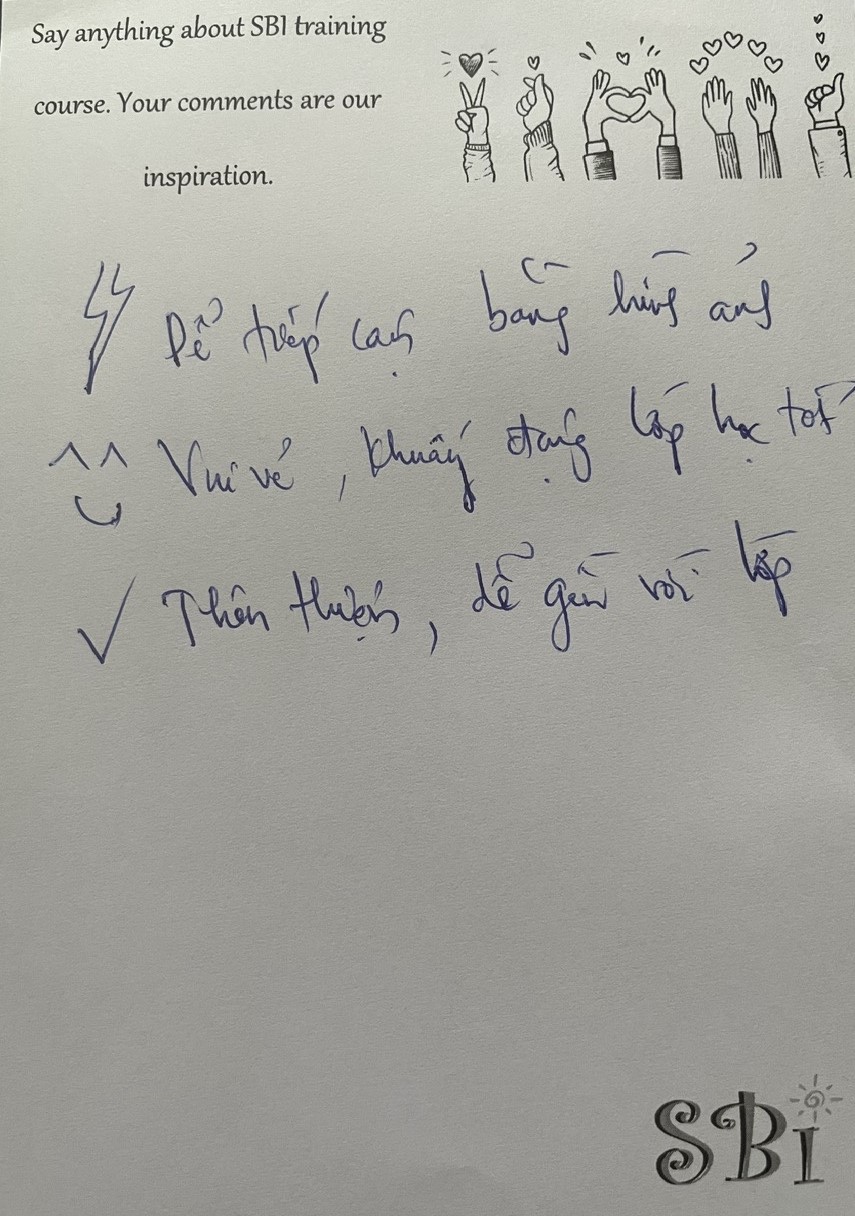 Say anything about SBI training
course. Your comments are our
inspiration.
Dễ tiếp cận bằng hình ảnh
Vui vẻ, khuấy động lớp học tốt
Thân thiện, dễ gần với lớp
SBi